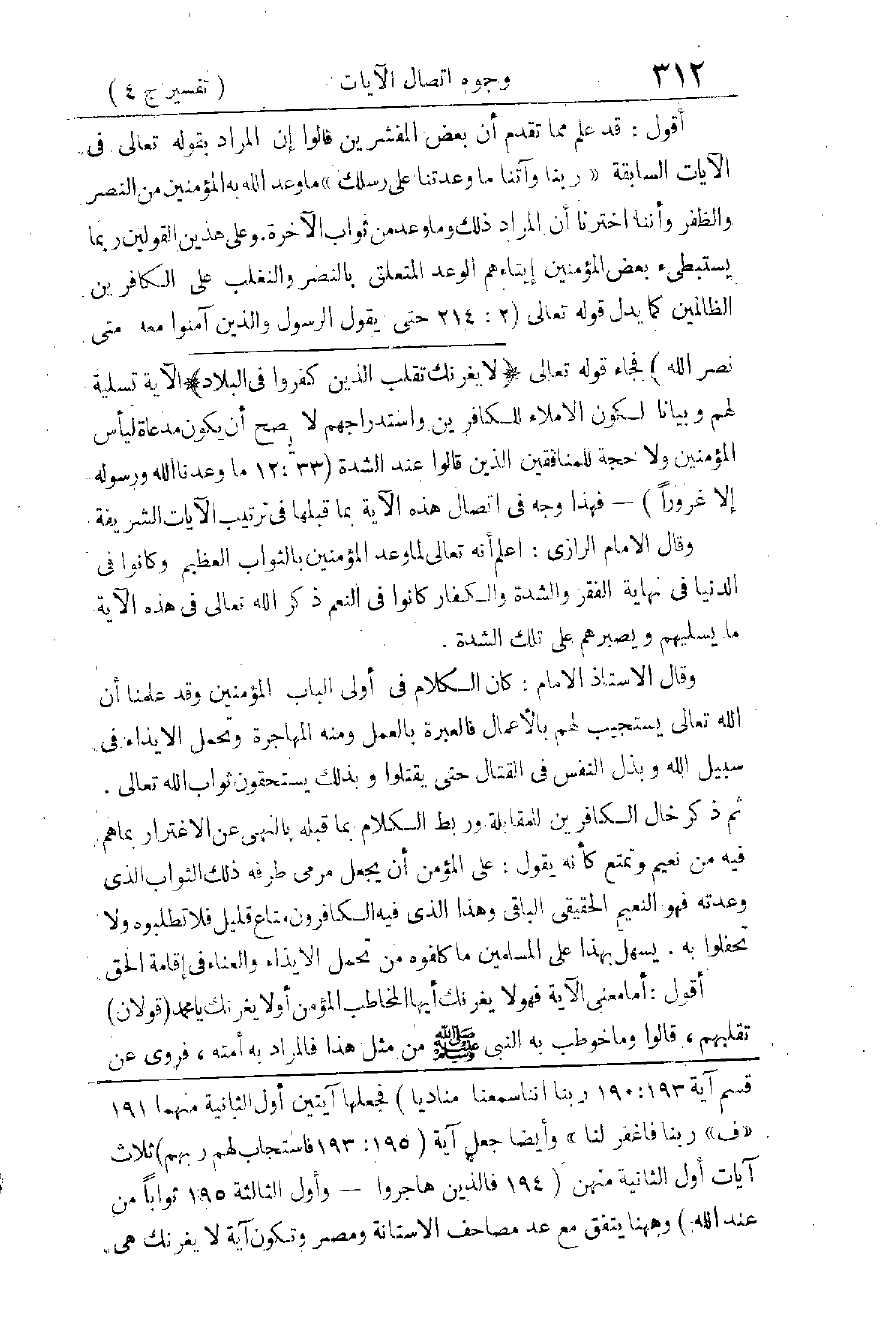 ٣١٢ وجوه اتصال الآيات ( تفسير ج ٤ )
أقول : قد علم مما تقدم أن بعض المفسرين قالوا إن المراد بقوله تعالى فى
الآيات السابقة « ربنا وآتنا ما وعدتنا على رسلك » ما وعد الله به المؤمنين من النصر
والظفر وأننا اخترنا أن المراد ذلك وما وعد من ثواب الآخرة . وعلى هذين القولين ربما
يستبطىء بعض المؤمنين إيتاءهم الوعد المتعلق بالنصر والتغلب على الكافرين
الظالمين كما يدل قوله تعالى (٢ : ٢١٤ حتى يقول الرسول والذين آمنوا معه متى
نصر الله ) فجاء قوله تعالى ﴿ لا يغرنك تقلب الذين كفروا فى البلاد ﴾ الآية تسلية
لهم وبيانا لكون الاملاء للكافرين واستدراجهم لا يصح أن يكون مدعاة ليأس
المؤمنين ولا حجة للمنافقين الذين قالوا عند الشدة (٣٣ :١٢ ما وعدنا الله ورسوله
إلا غروراً ) — فهذا وجه فى اتصال هذه الآية بما قبلها فى ترتيب الآيات الشريفة
وقال الامام الرازى : اعلم أنه تعالى لما وعد المؤمنين بالثواب العظيم وكانوا فى
الدنيا فى نهاية الفقر والشدة والكفار كانوا فى النعم ذكر الله تعالى فى هذه الآية
ما يسليهم ويصبرهم على تلك الشدة .
وقال الاستاذ الامام : كان الكلام فى أولى الباب المؤمنين وقد علمنا أن
الله تعالى يستجيب لهم بالأعمال فالعبرة بالعمل ومنه المهاجرة وتحمل الايذاء فى
سبيل الله وبذل النفس فى القتال حتى يقتلوا وبذلك يستحقون ثواب الله تعالى .
ثم ذكر حال الكافرين للمقابلة وربط الكلام بما قبله بالنهى عن الاغترار بماهم
فيه من نعيم وتمتع كأنه يقول : على المؤمن أن يجعل مرمى طرفه ذلك الثواب الذى
وعدته فهو النعيم الحقيقى الباقى وهذا الذى فيه الكافرون متاع قليل فلا تطلبوه ولا
تحفلوا به . يسهل بهذا على المسلمين ما كلفوه من تحمل الايذاء والعناء فى إقامة الحق
أقول : أما معنى الآية فهو لا يغرنك أيها المخاطب المؤمن أو لا يغرنك يا محمد (قولان)
تقلبهم ، قالوا وما خوطب به النبى ﷺ من مثل هذا فالمراد به أمته ، فروى عن
قسم آية ١٩٣ :١٩٠ ربنا اننا سمعنا مناديا ) فجعلها آيتين أول الثانية منهما ١٩١
«ف» ربنا فاغفر لنا » وأيضا جعل آية ( ١٩٥ : ١٩٣ فاستجاب لهم ربهم) ثلاث
آيات أول الثانية منهن ( ١٩٤ فالذين هاجروا — وأول الثالثة ١٩٥ ثواباً من
عند الله ) وههنا يتفق مع عد مصاحف الاستانة ومصر وتكون آية لا يغرنك هى